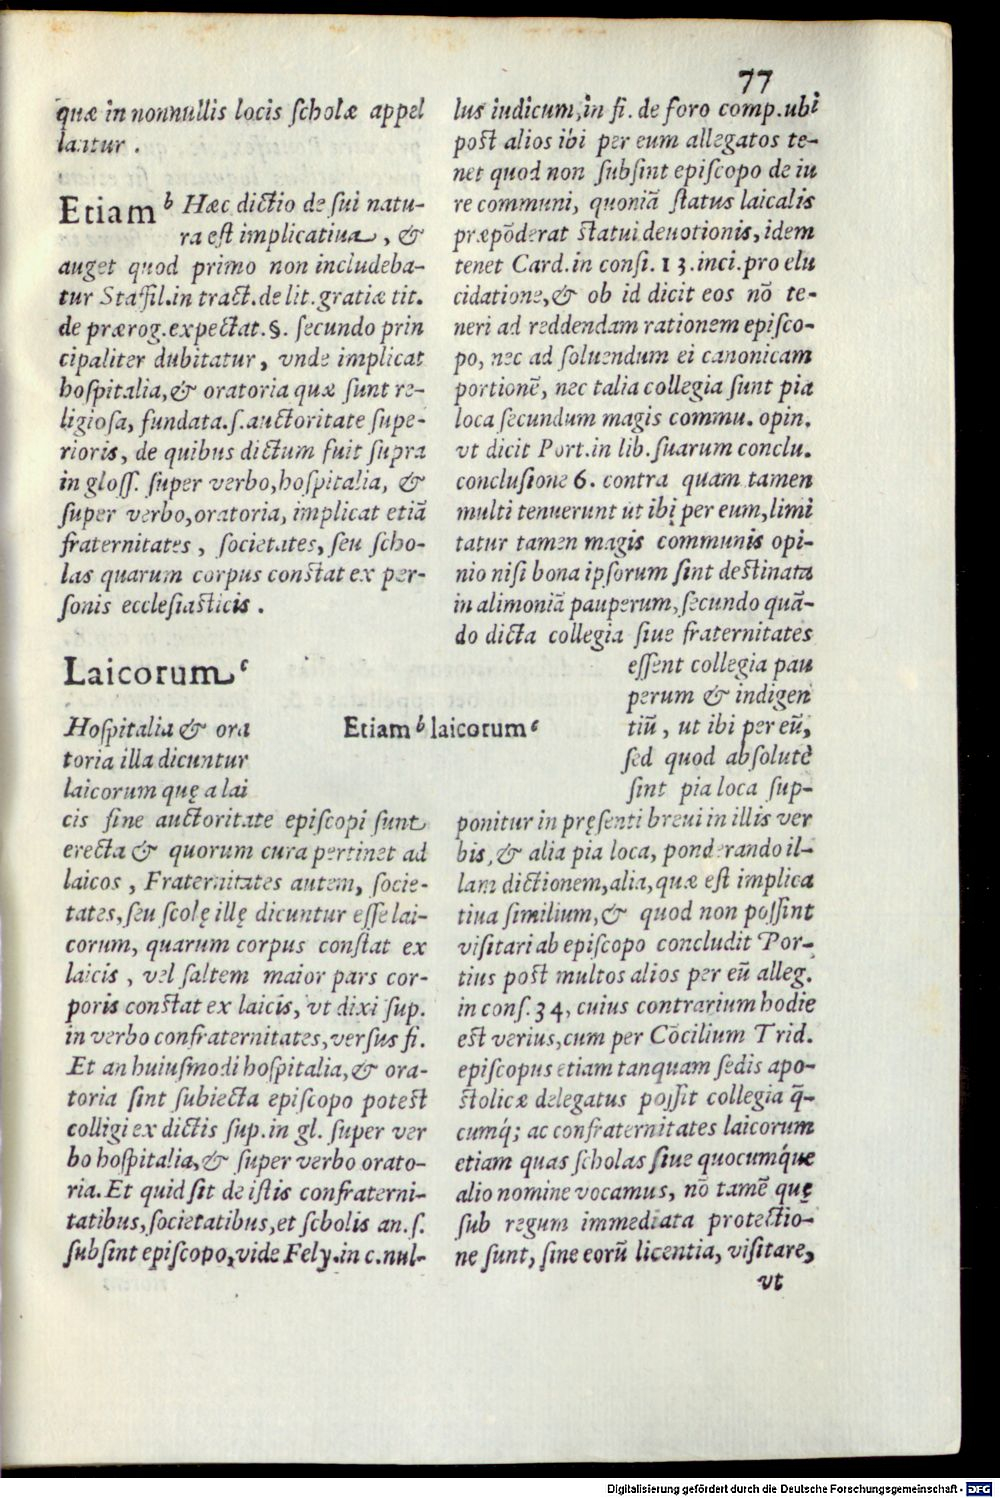 77
quæ in nonnullis locis ſcholæ appel
lantur .
Etiam b Hæc dictio de ſui natu-
ra eſt implicatiua , &
auget quod primo non includeba-
tur Staffil.in tract.de lit.gratiæ tit.
de prærog.expectat.§. ſecundo prin
cipaliter dubitatur, vnde implicat
hoſpitalia,& oratoria quæ ſunt re-
ligioſa, fundata.ſ.auctoritate ſupe-
rioris, de quibus dictum fuit ſupra
in gloſſ. ſuper verbo,hoſpitalia, &
ſuper verbo,oratoria, implicat etiã
fraternitates , ſocietates, ſeu ſcho-
las quarum corpus conſtat ex per-
ſonis eccleſiaſticis .
Laicorum c
Hoſpitalia & ora
toria illa dicuntur
laicorum quę a lai
cis ſine auctoritate epiſcopi ſunt
erecta & quorum cura pertinet ad
laicos , Fraternitates autem, ſocie-
tates, ſeu ſcolę illę dicuntur eſſe lai-
corum, quarum corpus conſtat ex
laicis , vel ſaltem maior pars cor-
poris conſtat ex laicis, vt dixi ſup.
in verbo confraternitates,verſus fi.
Et an huiuſmodi hoſpitalia,& ora-
toria ſint ſubiecta epiſcopo poteſt
colligi ex dictis ſup.in gl. ſuper ver
bo hoſpitalia,& ſuper verbo orato-
ria.Et quid ſit de iſtis confraterni-
tatibus,ſocietatibus,et ſcholis an.ſ.
ſubſint epiſcopo,vide Fely.in c.nul-
Etiam b laicorum c
lus iudicum,in fi. de foro comp.ubi
poſt alios ibi per eum allegatos te-
net quod non ſubſint epiſcopo de iu
re communi, quoniã ſtatus laicalis
præpõderat ſtatui deuotionis, idem
tenet Card.in conſi.13.inci.pro elu
cidatione,& ob id dicit eos nõ te-
neri ad reddendam rationem epiſco-
po, nec ad ſoluendum ei canonicam
portionẽ, nec talia collegia ſunt pia
loca ſecundum magis commu. opin.
vt dicit Port.in lib.ſuarum conclu.
concluſione 6. contra quam tamen
multi tenuerunt ut ibi per eum,limi
tatur tamen magis communis opi-
nio niſi bona ipſorum ſint deſtinata
in alimoniã pauperum,ſecundo quã-
do dicta collegia ſiue fraternitates
eſſent collegia pau
perum & indigen
tiũ, ut ibi per eũ,
ſed quod abſolutè
ſint pia loca ſup-
ponitur in pręſenti breui in illis ver
bis, & alia pia loca, ponderando il-
lam dictionem,alia,quæ eſt implica
tiua ſimilium,& quod non poſſint
viſitari ab epiſcopo concludit Por-
tius poſt multos alios per eũ alleg.
in conſ.34, cuius contrarium hodie
eſt verius,cum per Cõcilium Trid.
epiſcopus etiam tanquam ſedis apo-
ſtolicæ delegatus poſſit collegia q̃-
cumq́; ac confraternitates laicorum
etiam quas ſcholas ſiue quocumq́ue
alio nomine vocamus, nõ tamẽ quę
ſub regum immediata protectio-
ne ſunt, ſine eorũ licentia, viſitare,
vt
Digitalisierung gefördert durch die Deutsche Forschungsgemeinschaft - DFG